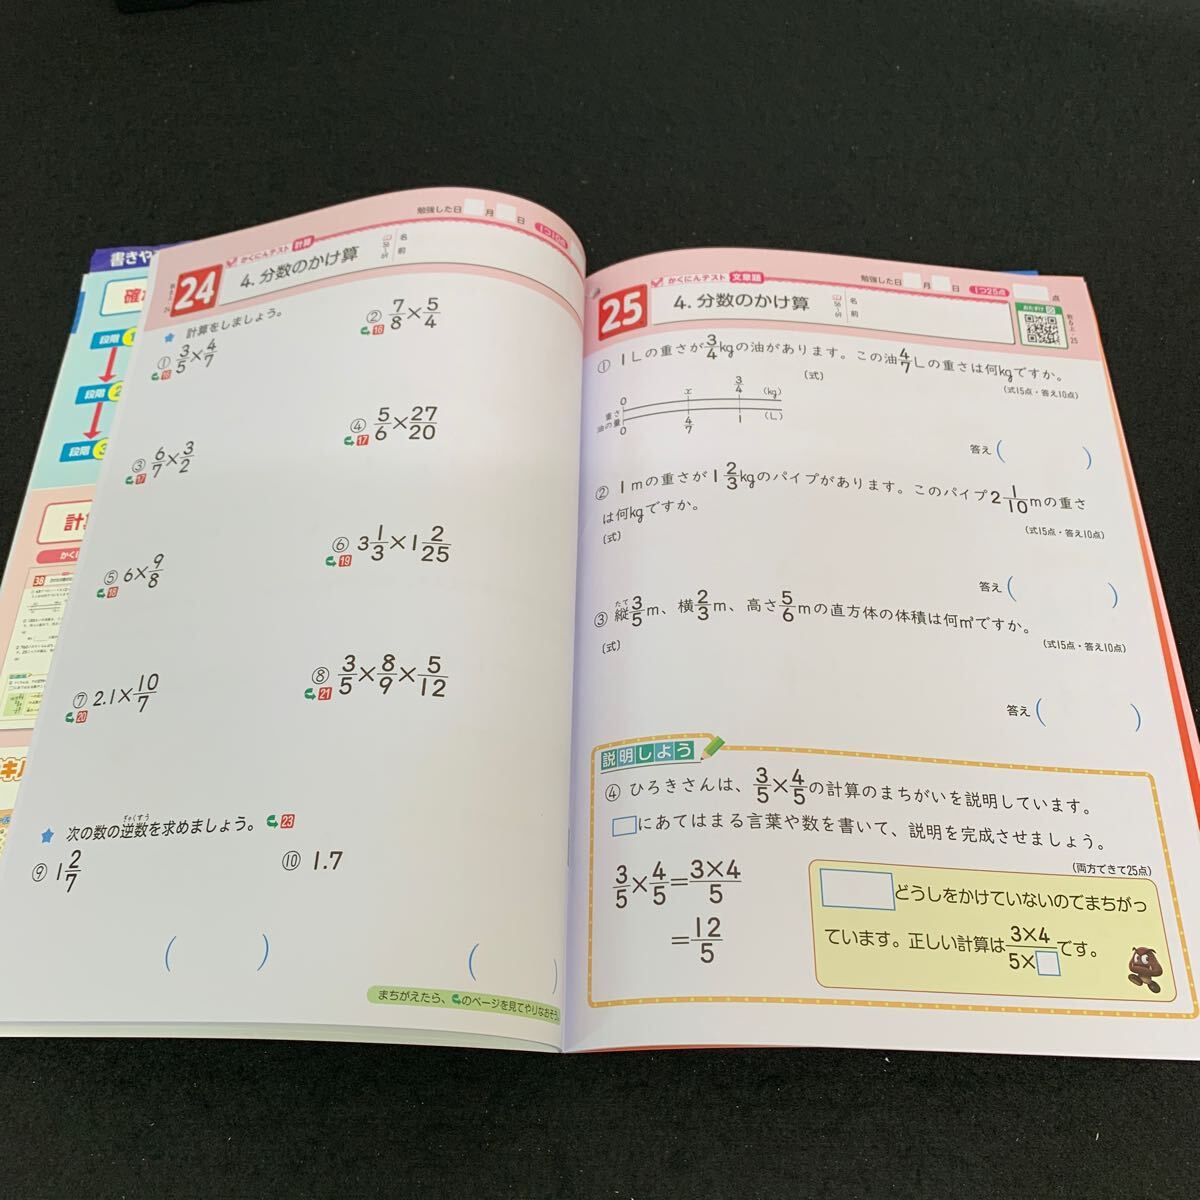 書きや
確
段階 1
段階 2
段階 3
計算
かくに
38
キル
24
かくにんテスト 計算
4. 分数のかけ算
名
前
勉強した日 月 日
1つ10点
計算をしましょう。
① 3/5×4/7
16
② 7/8×5/4
16
③ 6/7×3/2
17
④ 5/6×27/20
17
⑤ 6×9/8
18
⑥ 3 1/3×1 2/25
19
⑦ 2.1×10/7
20
⑧ 3/5×8/9×5/12
21
次の数の逆数を求めましょう。 23
ぎゃくすう
⑨ 1 2/7
⑩ 1.7
( )
( )
まちがえたら、のページを見てやりなおそう。
25
かくにんテスト 文章題
4. 分数のかけ算
56〜69
名
前
勉強した日 月 日
1つ25点
点
おたすけ
教6上・25
① 1Lの重さが3/4kgの油があります。この油4/7Lの重さは何kgですか。
(式15点・答え10点)
(式)
重さ 0 x 3/4 (kg)
油の量 0 4/7 1 (L)
答え ( )
② 1mの重さが1 2/3kgのパイプがあります。このパイプ2 1/10mの重さ
は何kgですか。
(式15点・答え10点)
(式)
答え ( )
たて
③ 縦3/5m、横2/3m、高さ5/6mの直方体の体積は何m³ですか。
(式15点・答え10点)
(式)
答え ( )
説明しよう
④ ひろきさんは、3/5×4/5の計算のまちがいを説明しています。
□にあてはまる言葉や数を書いて、説明を完成させましょう。
(両方できて25点)
3/5×4/5=3×4/5
=12/5
□どうしをかけていないのでまちがっ
ています。正しい計算は3×4/5×□です。